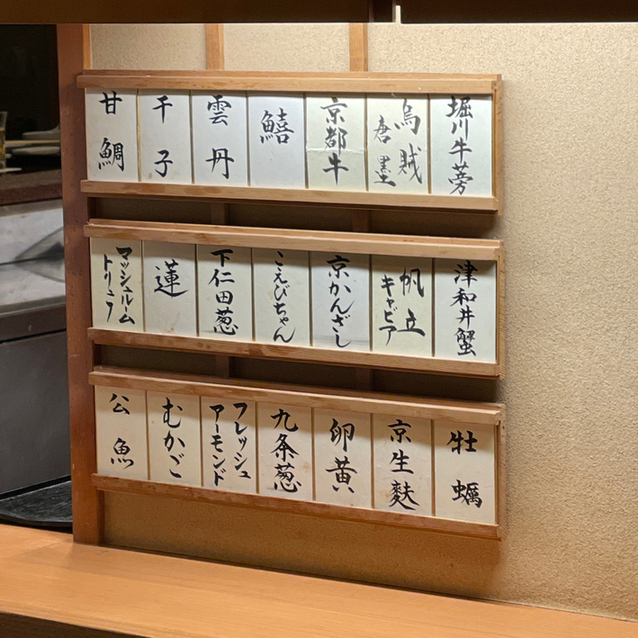 堀川牛蒡
烏賊
唐墨
京都牛
鱚
雲丹
干子
甘鯛
津和井蟹
帆立
キャビア
京かんざし
こえびちゃん
下仁田葱
蓮
マッシュルーム
トリュフ
牡蠣
京生麩
卵黄
九条葱
フレッシュ
アーモンド
むかご
公魚